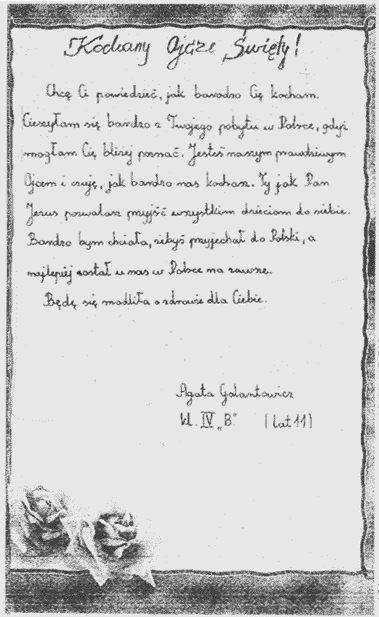 Kochany Ojcze Święty!
Chcę Ci powiedzieć, jak bardzo Cię kocham.
Cieszyłam się bardzo z Twojego pobytu w Polsce, gdyż
mogłam Cię bliżej poznać. Jesteś naszym prawdziwym
Ojcem i czuję, jak bardzo nas kochasz. Ty jak Pan
Jezus pozwalasz przyjść wszystkim dzieciom do siebie.
Bardzo bym chciała, żebyś przyjechał do Polski, a
najlepiej został u nas w Polsce na zawsze.
Będę się modliła o zdrowie dla Ciebie.
Agata Golantowicz
kl. IV „B" (lat 11)